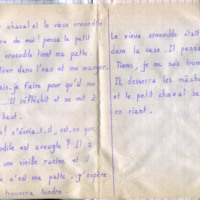 cheval et le vieux crocodile
re de moi! pensa le petit
crocodile tient ma patte.
tirer dans l'eau et me manger.
mais. je faire pour qu'il me
... Il réfléchit et se mit à
haut.
! s'écria.t.il, est.ce que
odile est aveugle? Il a
une vieille racine et il
a c'est ma patte. J'espère
trouvera tendre.
Le vieux crocodile était
dans la case. Il pensa
Tiens, je me suis trom
Il desserra les mâcho
et le petit cheval se
en riant.